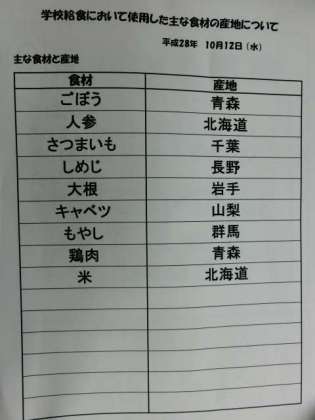 学校給食において使用した主な食材の産地について
平成28年 10月12日（水）
主な食材と産地
食材 産地
ごぼう 青森
人参 北海道
さつまいも 千葉
しめじ 長野
大根 岩手
キャベツ 山梨
もやし 群馬
鶏肉 青森
米 北海道